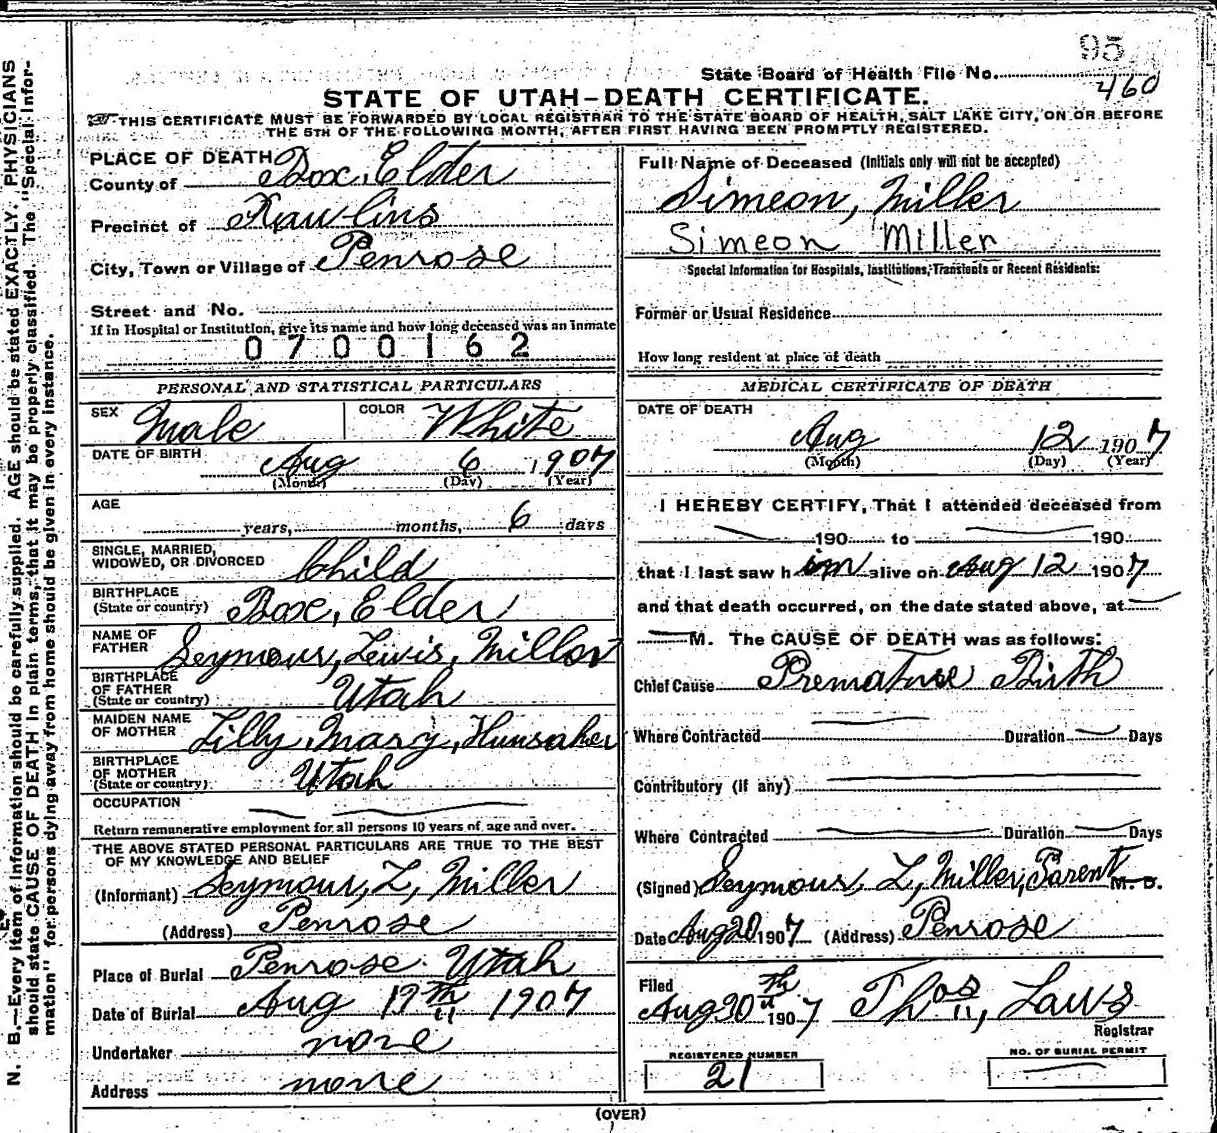 95
State Board of Health File No. 460
STATE OF UTAH-DEATH CERTIFICATE.
THIS CERTIFICATE MUST BE FORWARDED BY LOCAL REGISTRAR TO THE STATE BOARD OF HEALTH, SALT LAKE CITY, ON OR BEFORE
THE 5TH OF THE FOLLOWING MONTH, AFTER FIRST HAVING BEEN PROMPTLY REGISTERED.
PLACE OF DEATH
County of Box Elder
Precinct of Rawlins
City, Town or Village of Penrose
Street and No.
If in Hospital or Institution, give its name and how long deceased was an inmate
0700162
Full Name of Deceased (Initials only will not be accepted)
Simeon, Miller
Simeon Miller
Special Information for Hospitals, Institutions, Transients or Recent Residents:
Former or Usual Residence
How long resident at place of death
PERSONAL AND STATISTICAL PARTICULARS
SEX Male COLOR White
DATE OF BIRTH Aug 6 1907
(Month) (Day) (Year)
AGE
years, months, 6 days
SINGLE, MARRIED,
WIDOWED, OR DIVORCED Child
BIRTHPLACE
(State or country) Box, Elder
NAME OF
FATHER Seymour, Lewis, Miller
BIRTHPLACE
OF FATHER
(State or country) Utah
MAIDEN NAME
OF MOTHER Lilly, Mary, Hunsaker
BIRTHPLACE
OF MOTHER
(State or country) Utah
OCCUPATION
Return remunerative employment for all persons 10 years of age and over.
THE ABOVE STATED PERSONAL PARTICULARS ARE TRUE TO THE BEST
OF MY KNOWLEDGE AND BELIEF
(Informant) Seymour, L, Miller
(Address) Penrose
Place of Burial Penrose. Utah
Date of Burial Aug 12th 1907
Undertaker none
Address none
MEDICAL CERTIFICATE OF DEATH
DATE OF DEATH
Aug 12 1907
(Month) (Day) (Year)
I HEREBY CERTIFY, That I attended deceased from
190 to 190
that I last saw him alive on Aug 12 1907
and that death occurred, on the date stated above, at
M. The CAUSE OF DEATH was as follows:
Chief Cause Premature Birth
Where Contracted Duration Days
Contributory (if any)
Where Contracted Duration Days
(Signed) Seymour, L, Miller, Parent M. D.
Date Aug 20 1907 (Address) Penrose
Filed
Aug 30th 1907 Thos, Laws
Registrar
REGISTERED NUMBER
21
NO. OF BURIAL PERMIT
(OVER)
N. B.—Every item of information should be carefully supplied. AGE should be stated EXACTLY. PHYSICIANS
should state CAUSE OF DEATH in plain terms, that it may be properly classified. The "Special Infor-
mation" for persons dying away from home should be given in every instance.